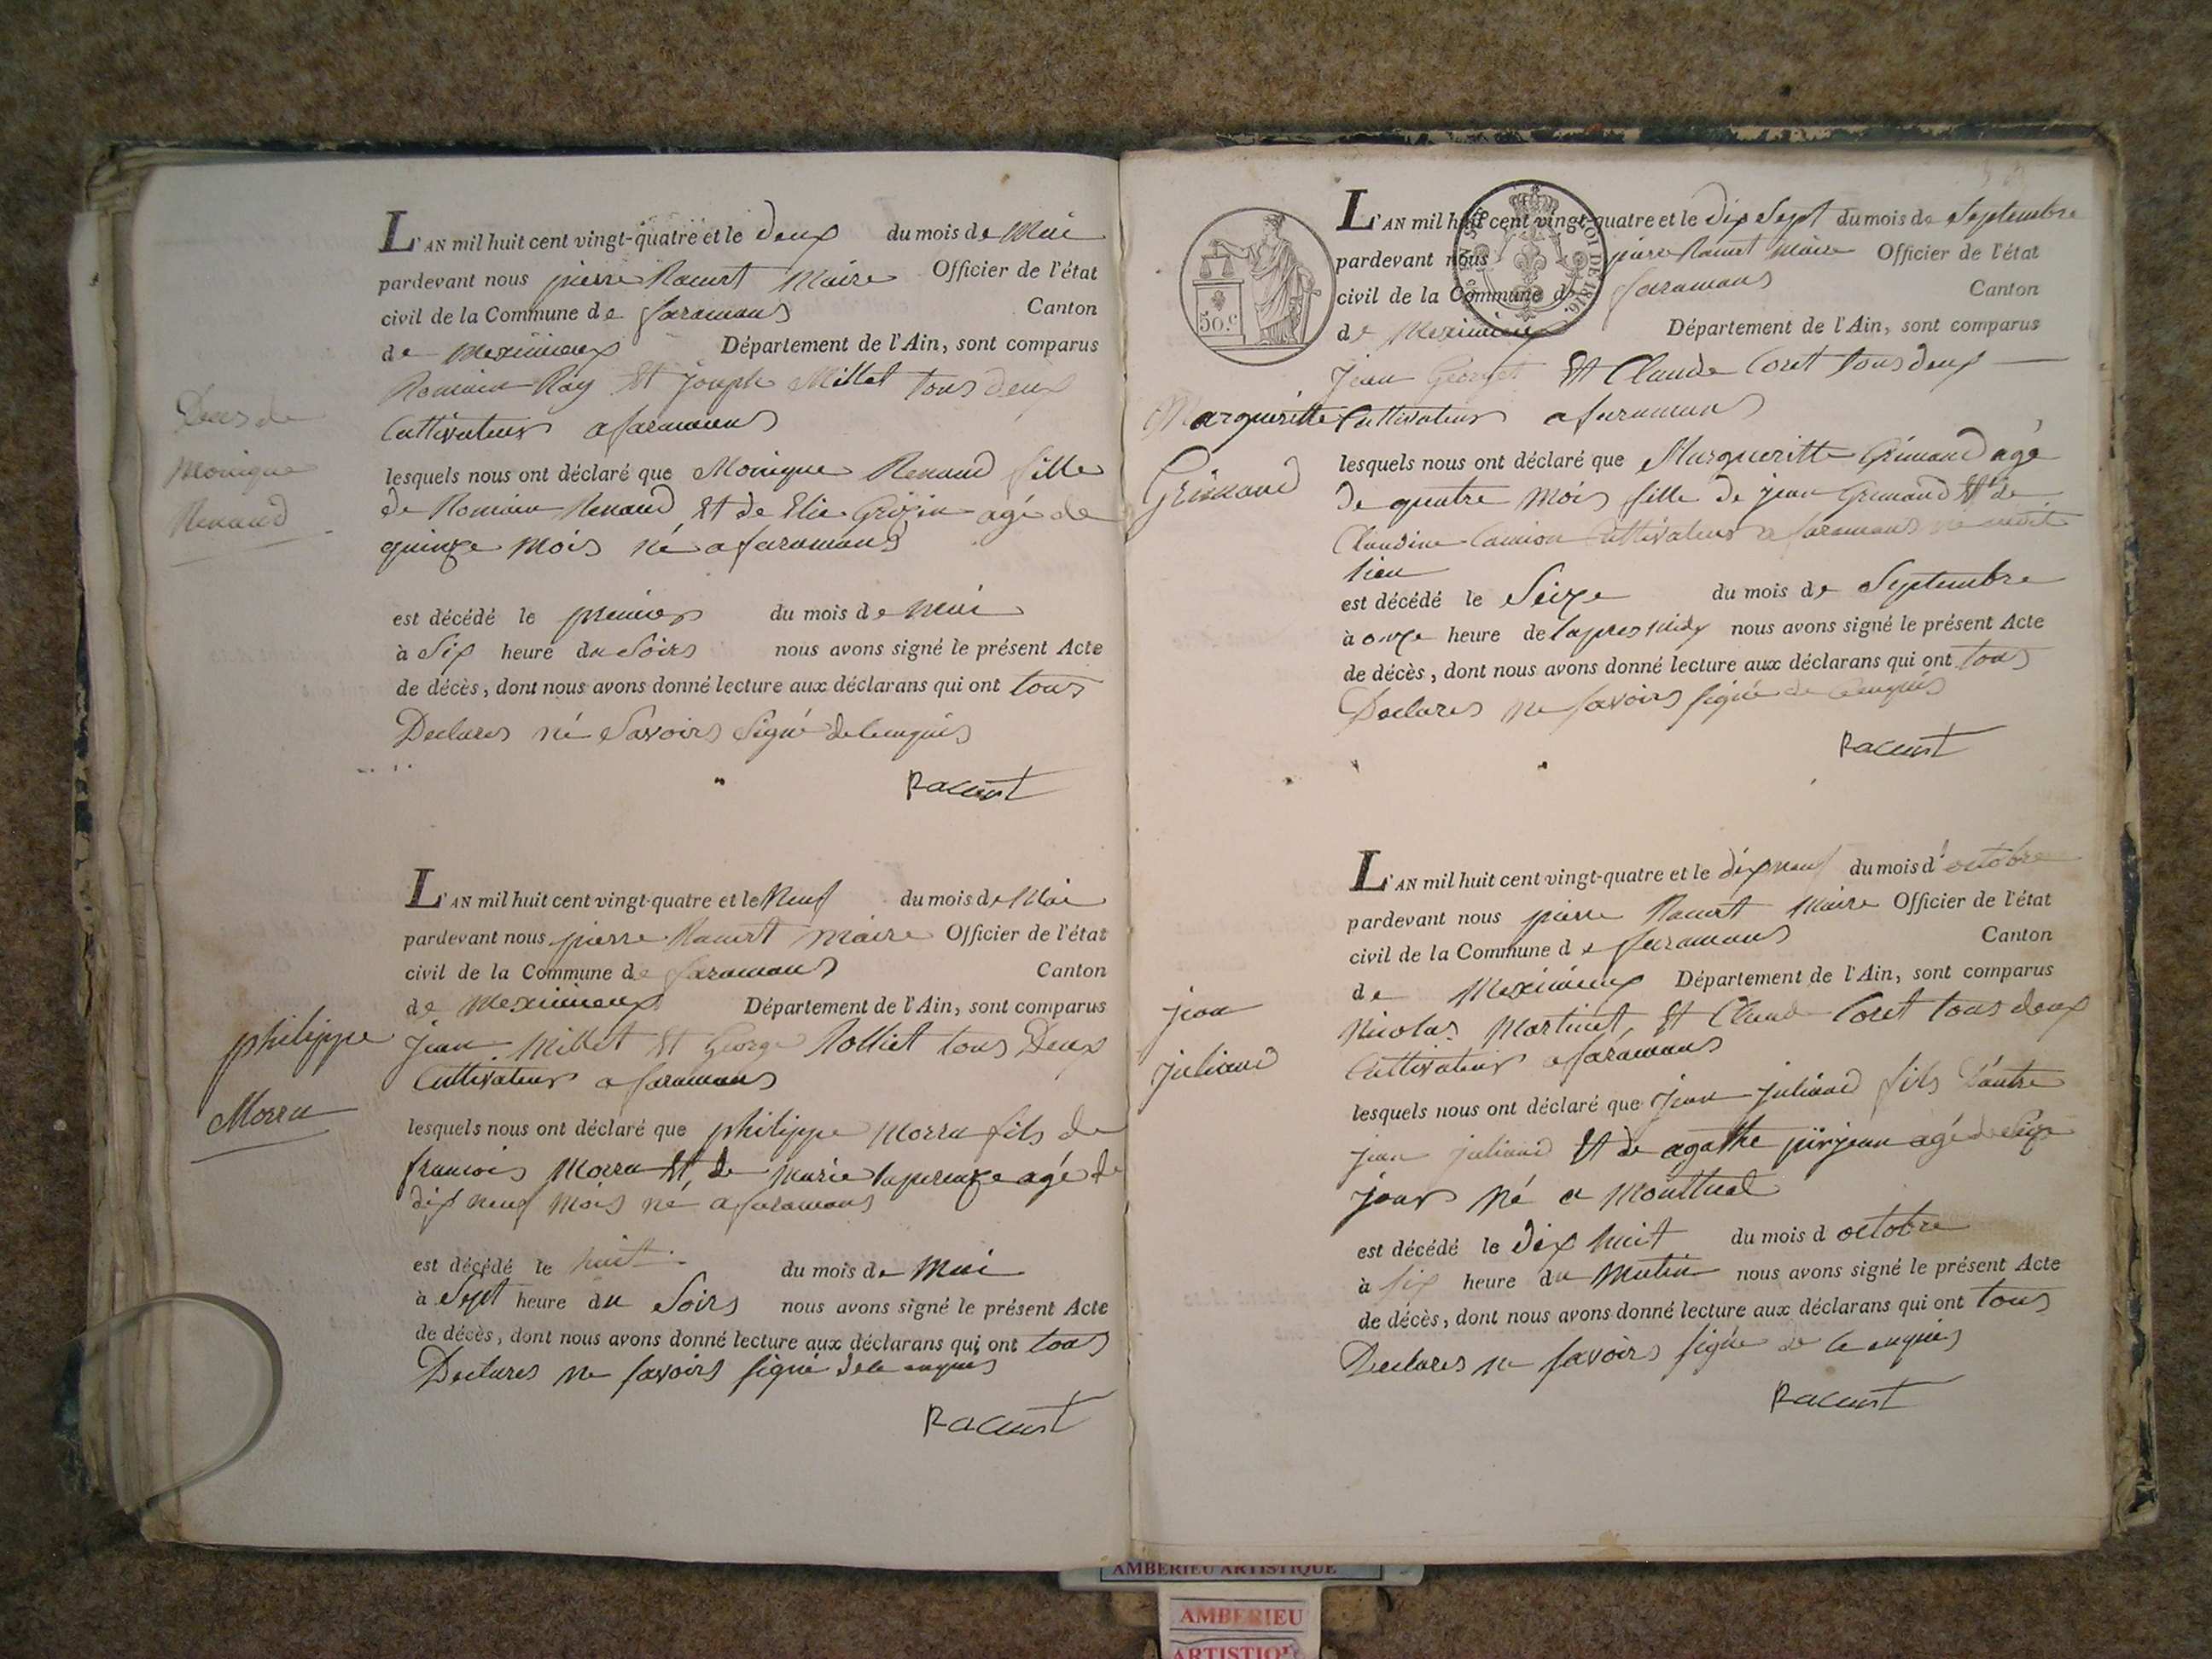 Deces de
Monique
Renaud
L'AN mil huit cent vingt-quatre et le deux du mois de Mai
pardevant nous pierre Racurt Maire Officier de l'état
civil de la Commune de faramans Canton
de Meximieux Département de l'Ain, sont comparus
Romain Ray Et joseph Millet tous deux
Cultivateurs a faramans
lesquels nous ont déclaré que Monique Renaud fille
de Romain Renaud Et de Elie agé de
quinze Mois né a faramans
est décédé le premier du mois de Mai
à Six heure du Soirs nous avons signé le présent Acte
de décès, dont nous avons donné lecture aux déclarans qui ont tous
Declares né Savoirs Signé de
Racurt
philippe
Morra
L'AN mil huit cent vingt-quatre et le Neuf du mois de Mai
pardevant nous pierre Racurt Maire Officier de l'état
civil de la Commune de faramans Canton
de Meximieux Département de l'Ain, sont comparus
jean Millet Et George Rolliet tous Deux
Cultivateur a faramans
lesquels nous ont déclaré que philippe Morra fils de
francois Morra Et de Marie agé de
dix neuf Mois né a faramans
est décédé le huit du mois de Mai
à Sept heure du Soirs nous avons signé le présent Acte
de décès, dont nous avons donné lecture aux déclarans qui ont tous
Declares ne savoirs signé de
Racurt
50.c
LOI DE 1816.
L'AN mil huit cent vingt-quatre et le dix Sept du mois de Septembre
pardevant nous pierre Racurt Maire Officier de l'état
civil de la Commune de faramans Canton
de Meximieux Département de l'Ain, sont comparus
Jean Georget Et Claude Coret tous deux
Margueritte
Grimaud
Cultivateur a faramans
lesquels nous ont déclaré que Margueritte Grimaud agé
de quatre Mois fille de jean Grimaud Et de
Claudine Camion Cultivateur a faramans né
lieu
est décédé le Seize du mois de Septembre
à onze heure de lapres Midy nous avons signé le présent Acte
de décès, dont nous avons donné lecture aux déclarans qui ont tous
Declares ne savoirs signé de
Racurt
jean
juliand
L'AN mil huit cent vingt-quatre et le dix neuf du mois d'octobre
pardevant nous pierre Racurt Maire Officier de l'état
civil de la Commune de faramans Canton
de Meximieux Département de l'Ain, sont comparus
Nicolas Martinet, Et Claude Coret tous deux
Cultivateur a faramans
lesquels nous ont déclaré que jean juliand fils D'autre
jean juliand Et de agathe agé de
jour Né a Montluel
est décédé le dix huit du mois d octobre
à Six heure du Matin nous avons signé le présent Acte
de décès, dont nous avons donné lecture aux déclarans qui ont tous
Declares ne savoirs signée de
Racurt
AMBERIEU ARTISTIQUE
AMBERIEU
ARTISTIQUE